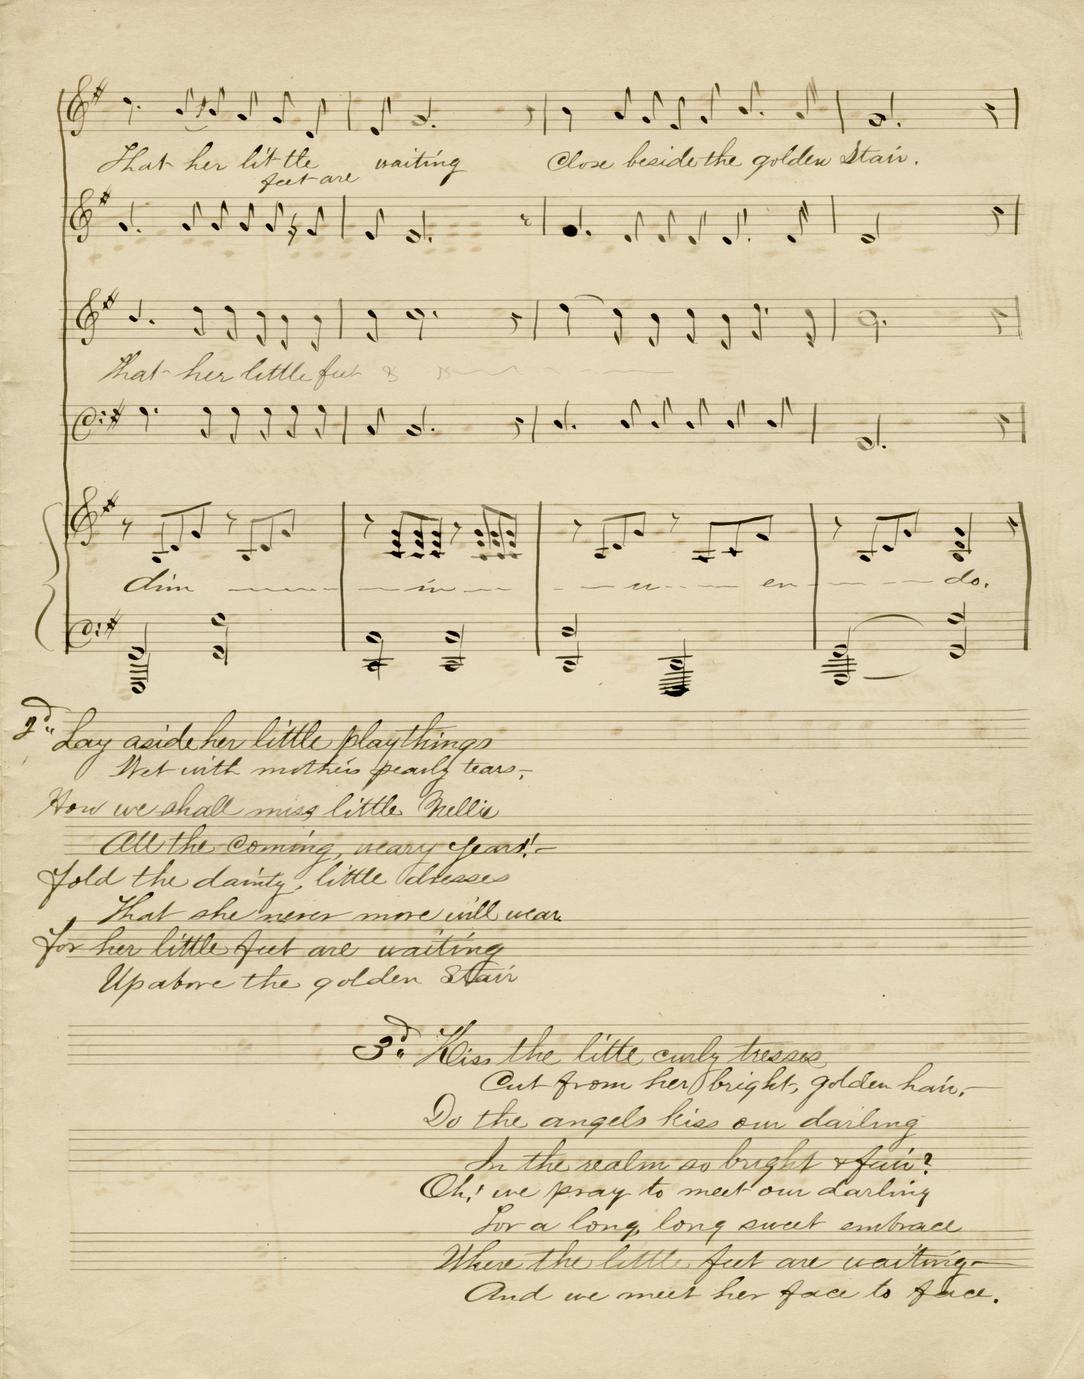 That her little waiting Close beside the golden Stair.
feet are
That her little feet
dim in u en do.
2d. Lay aside her little playthings
Wet with mother's pearly tears,
How we shall miss little Nellie
All the coming, weary years!
Fold the dainty, little dresses
That she never more will wear
For her little feet are waiting
Up above the golden Stair
3d. Kiss the litte curly tresses
Cut from her bright, golden hair,
Do the angels kiss our darling
In the realm so bright & fair?
Oh! we pray to meet our darling
For a long, long sweet embrace
Where the little feet are waiting
And we meet her face to face.